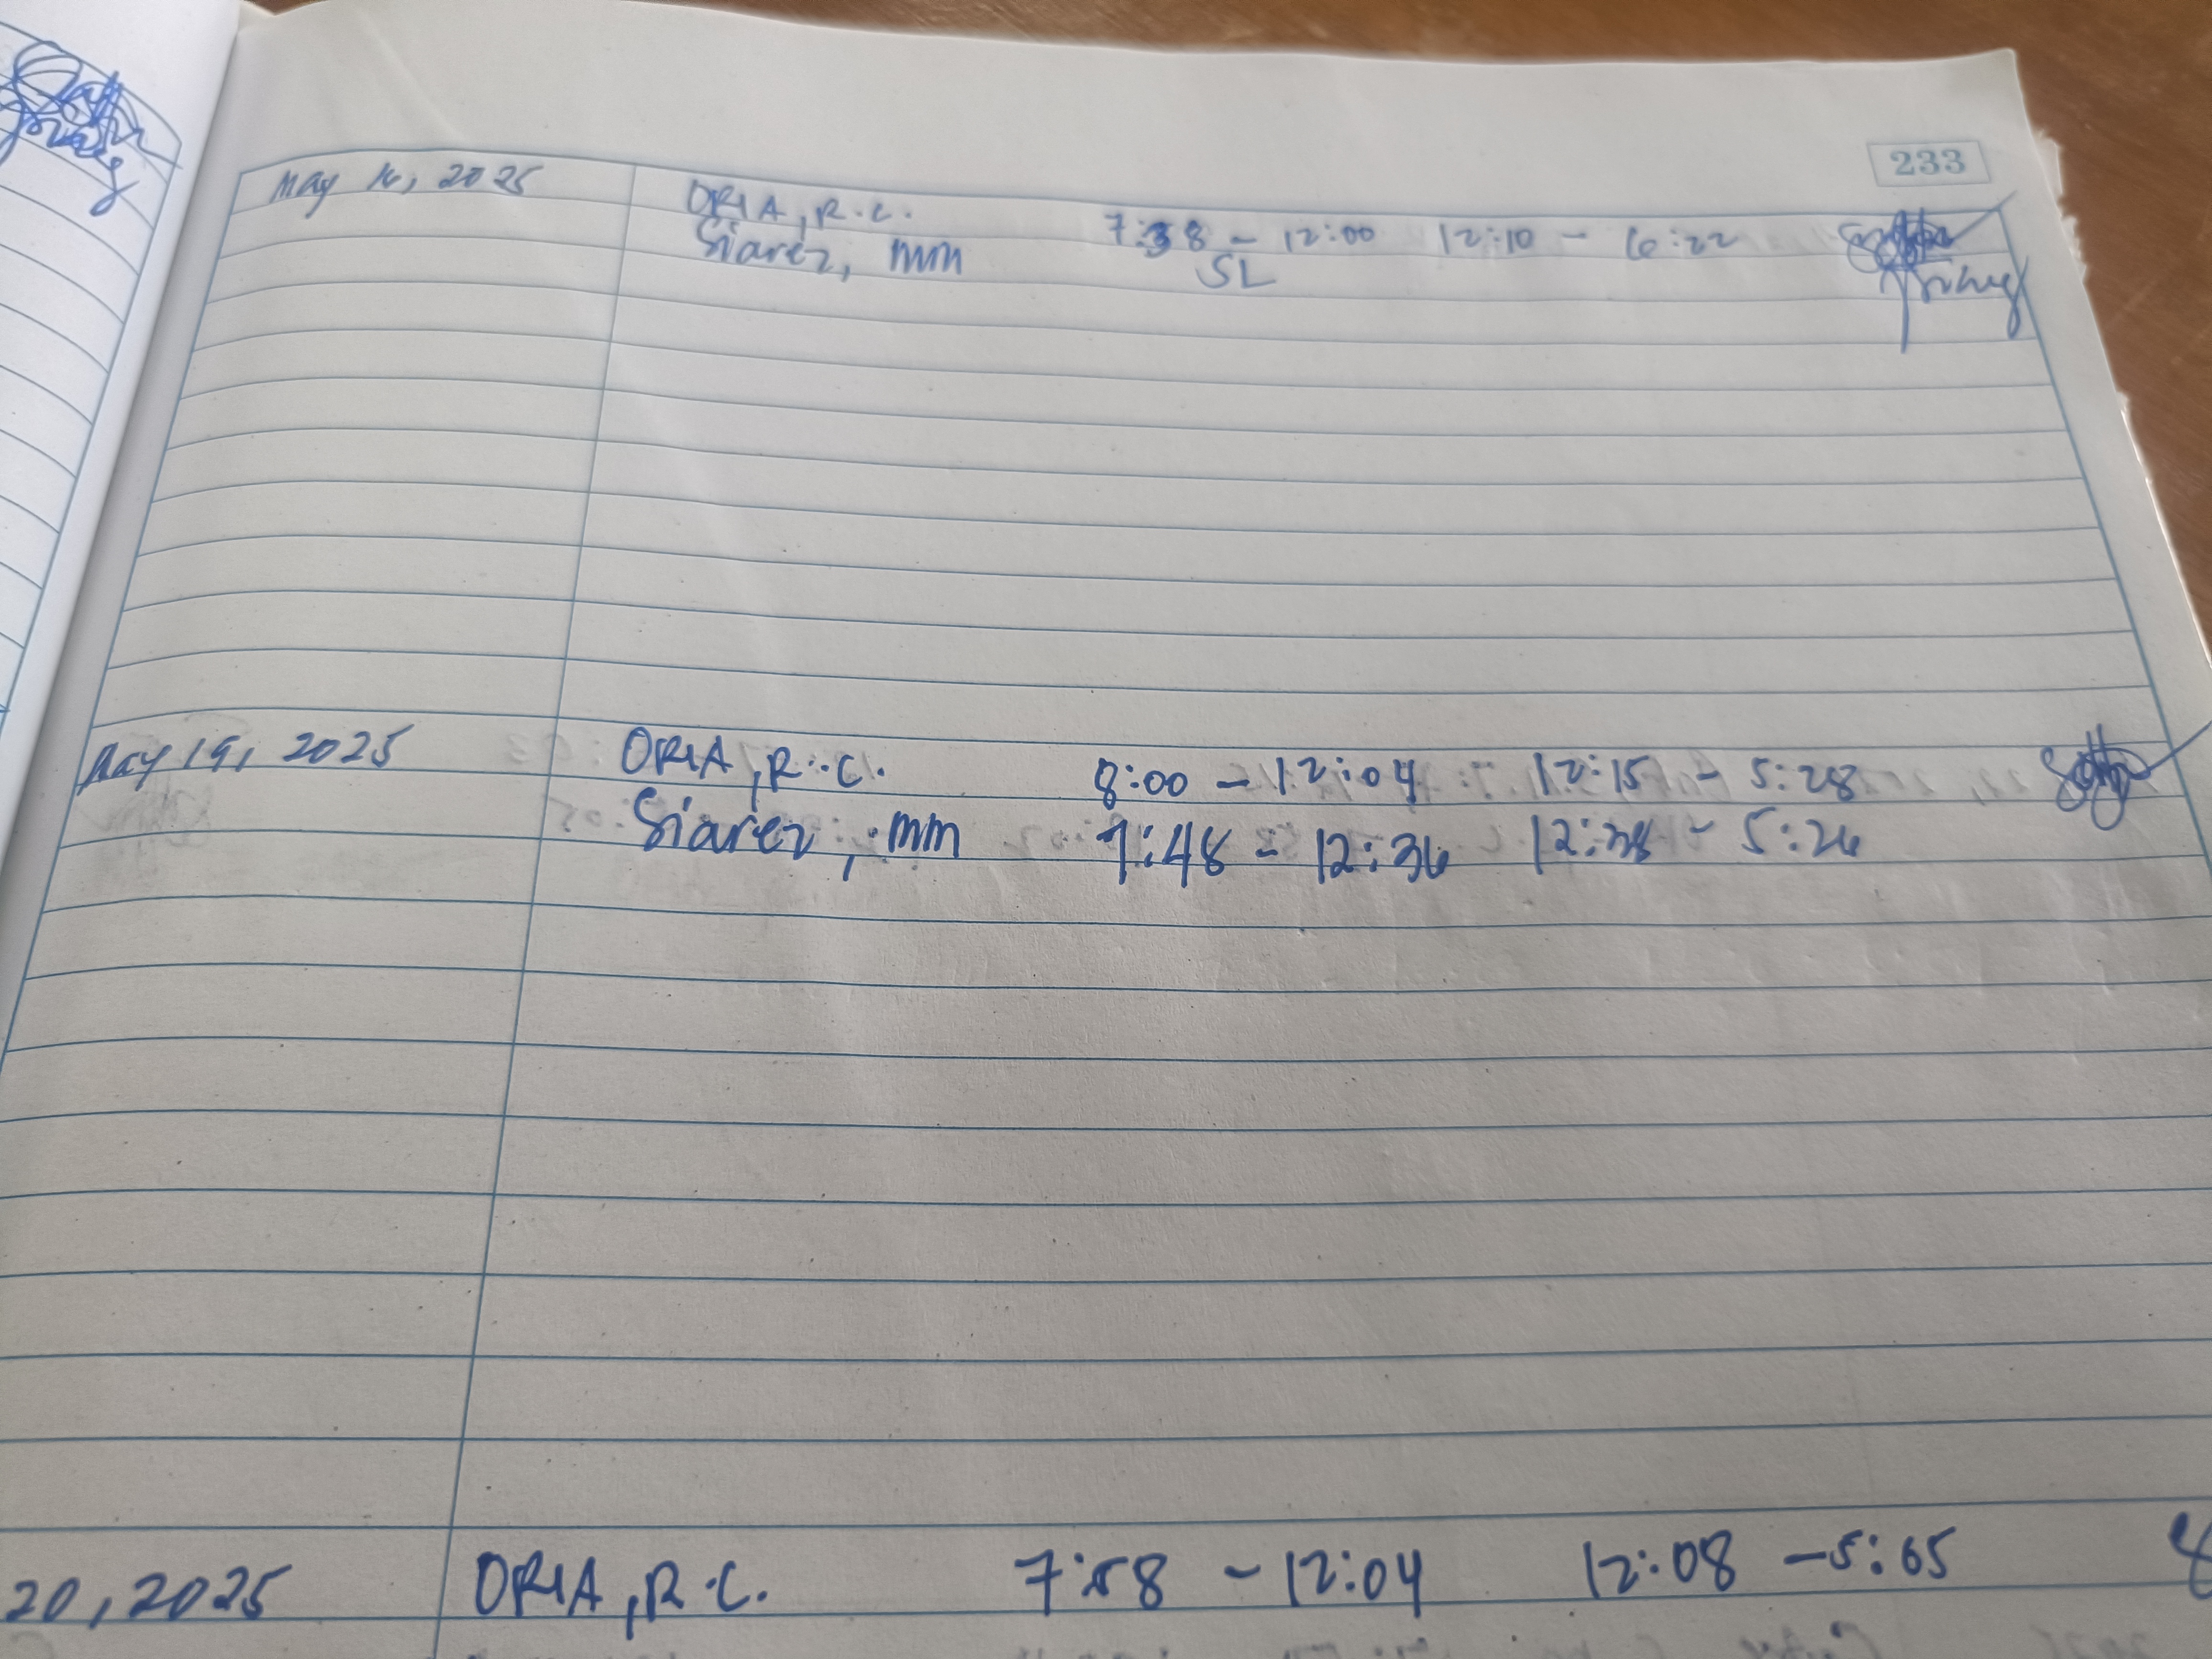 233
May 16, 2025 ORIA, R.C. 7:38 - 12:00 12:10 - 6:22
Siarez, mm SL
May 19, 2025 ORIA, R.C. 8:00 - 12:04 12:15 - 5:28
Siarez, mm 7:48 - 12:36 12:38 - 5:26
20, 2025 ORIA, R.C. 7:58 - 12:04 12:08 - 5:05